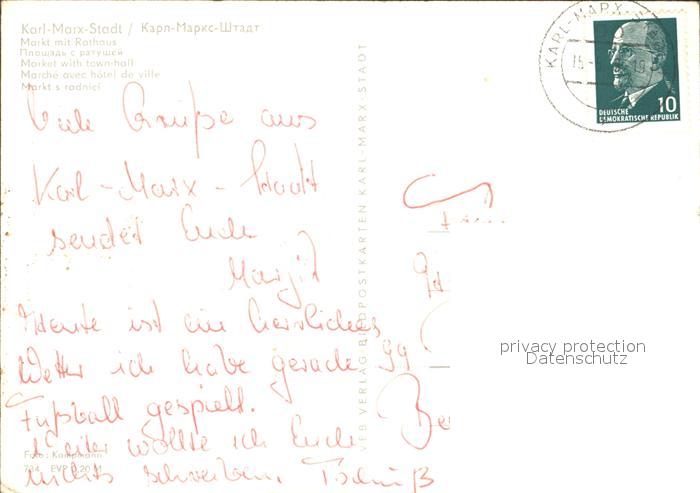 Karl-Marx-Stadt / Карл-Маркс-Штадт
Markt mit Rathaus
Площадь с ратушей
Market with town-hall
Marché avec hôtel de ville
Markt s radnicí
Viele Grüße aus
Karl-Marx-Stadt
sendet Euch
Margit
Heute ist ein herrliches
Wetter ich habe gerade
Fußball gespielt.
Weiter wollte ich Euch
nichts schreiben. Tschüß
Foto: Kampmann
VEB VERLAG BILD POSTKARTEN KARL-MARX-STADT
KARL-MARX-
15
10
DEUTSCHE
DEMOKRATISCHE REPUBLIK
99
Be
privacy protection
Datenschutz